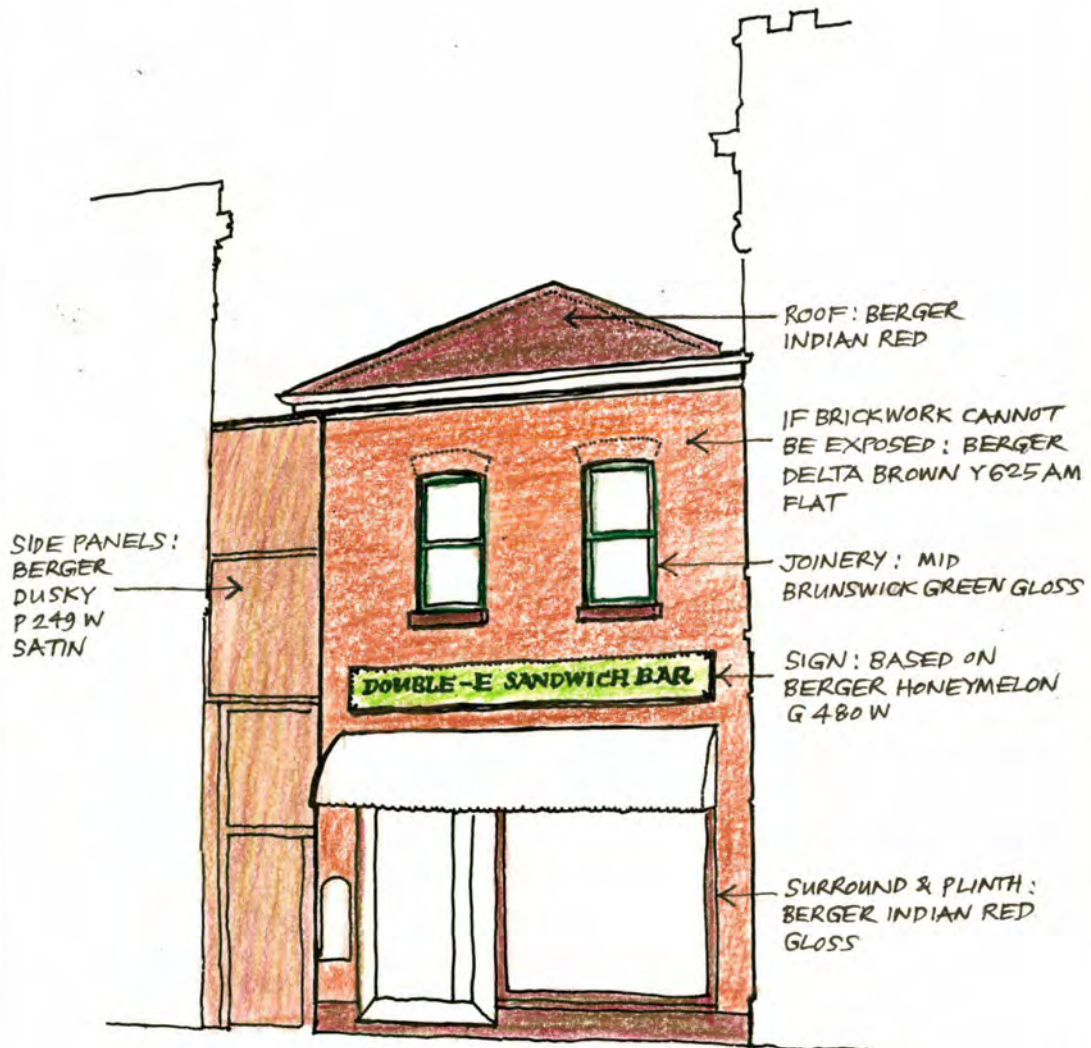 ROOF: BERGER
INDIAN RED
IF BRICKWORK CANNOT
BE EXPOSED: BERGER
DELTA BROWN Y625AM
FLAT
SIDE PANELS:
BERGER
DUSKY
P249W
SATIN
JOINERY: MID
BRUNSWICK GREEN GLOSS
DOUBLE-E SANDWICH BAR
SIGN: BASED ON
BERGER HONEYMELON
G480W
SURROUND & PLINTH:
BERGER INDIAN RED
GLOSS